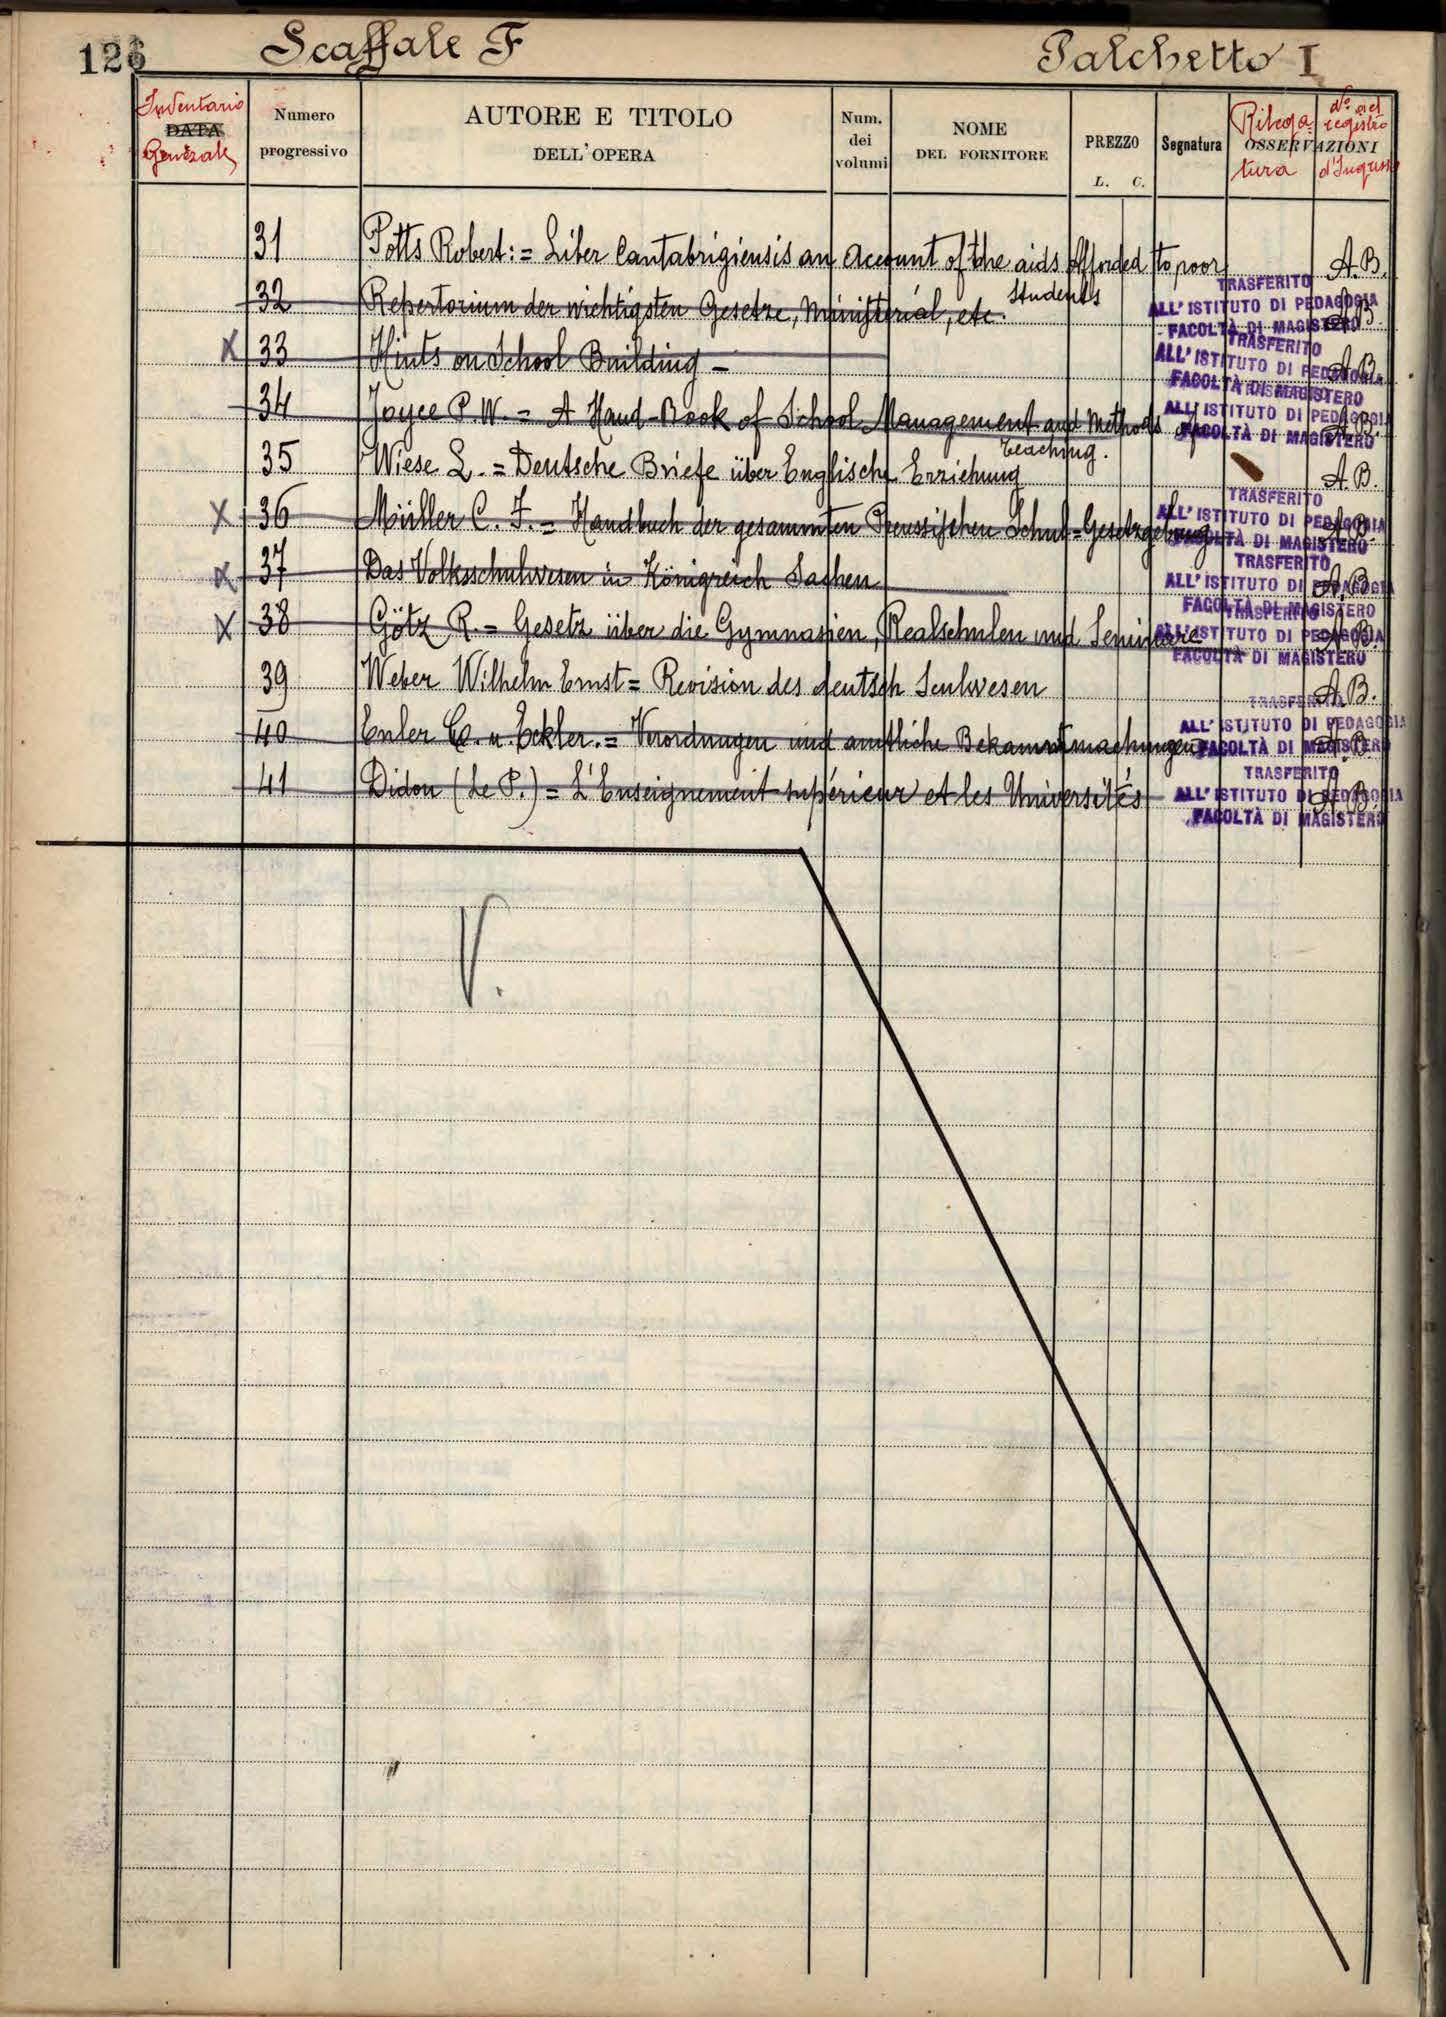 126 Scaffale F Palchetto I
Inventario
DATA
Generale
Numero
progressivo
AUTORE E TITOLO
DELL'OPERA
Num.
dei
volumi
NOME
DEL FORNITORE
PREZZO
L. C.
Segnatura
Rilega
OSSERVAZIONI
tura
No nel
registro
d'Ingresso
31 Potts Robert: = Liber Cantabrigiensis an Account of the aids Afforded to poor A.B.
Students
32 Repertorium der wichtigsten Gesetze, Ministerial, etc. A.B.
TRASFERITO
ALL'ISTITUTO DI PEDAGOGIA
FACOLTÀ DI MAGISTERO
X 33 Hints on School Building – A.B.
TRASFERITO
ALL'ISTITUTO DI PEDAGOGIA
FACOLTÀ DI MAGISTERO
34 Joyce P.W. = A Hand-Book of School Management and Methods of A.B.
teaching.
TRASFERITO
ALL'ISTITUTO DI PEDAGOGIA
FACOLTÀ DI MAGISTERO
35 Wiese L. = Deutsche Briefe über Englische Erziehung A.B.
X 36 Müller C. F. = Handbuch der gesammten Preussischen Schul=Gesetzgebung A.B.
TRASFERITO
ALL'ISTITUTO DI PEDAGOGIA
FACOLTÀ DI MAGISTERO
X 37 Das Volksschulwesen in Königreich Sachen A.B.
TRASFERITO
ALL'ISTITUTO DI PEDAGOGIA
FACOLTÀ DI MAGISTERO
X 38 Götz R. = Gesetz über die Gymnasien, Realschulen und Seminare A.B.
TRASFERITO
ALL'ISTITUTO DI PEDAGOGIA
FACOLTÀ DI MAGISTERO
39 Weber Wilhelm Ernst = Revision des deutsch Sculwesen A.B.
40 Euler C. u. Eckler. = Verordnungen und amtliche Bekanntmachungen A.B.
TRASFERITO
ALL'ISTITUTO DI PEDAGOGIA
FACOLTÀ DI MAGISTERO
41 Didon (Le P.) = L'Enseignement supérieur et les Universités A.B.
TRASFERITO
ALL'ISTITUTO DI PEDAGOGIA
FACOLTÀ DI MAGISTERO
V.